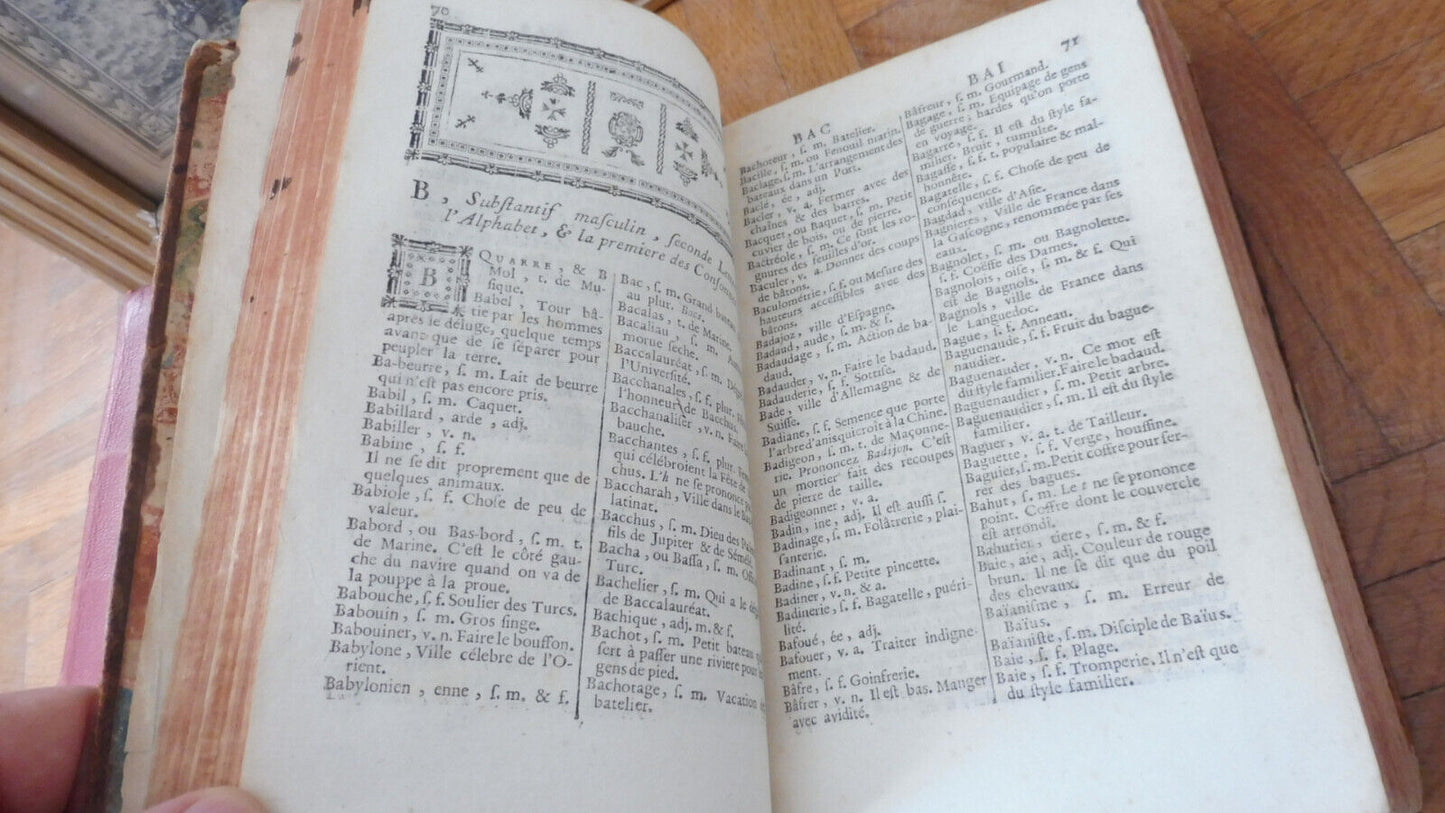 70
B, Substantif masculin, seconde
l'Alphabet, & la premiere des
B
QUARRE, & B
Mol, t. de Mu-
sique.
Babel, Tour bâ-
tie par les hommes
après le déluge, quelque temps
avant que de se séparer pour
peupler la terre.
Ba-beurre, s. m. Lait de beurre
qui n'est pas encore pris.
Babil, s. m. Caquet.
Babillard, arde, adj.
Babiller, v. n.
Babine, s. f.
Il ne se dit proprement que de
quelques animaux.
Babiole, s. f. Chose de peu de
valeur.
Babord, ou Bas-bord, s. m. t.
de Marine. C'est le côté gau-
che du navire quand on va de
la pouppe à la proue.
Babouche, s. f. Soulier des Turcs.
Babouin, s. m. Gros singe.
Babouiner, v. n. Faire le bouffon.
Babylone, Ville célebre de l'O-
rient.
Babylonien, enne, s. m. & f.
Bac, s. m. Grand
au plur. Bacs.
Bacalas, t. de Marine
Bacaliau, s. m.
morue séche.
Baccalauréat, s. m.
l'Université.
Bacchanales, s. f. plur.
l'honneur de Bacchus.
Bacchanaliser, v. n. Faire
bauche.
Bacchantes, s. f. plur.
qui célébroient la Fête de
chus. L'h ne se prononce
Baccharah, Ville dans le
latinat.
Bacchus, s. m. Dieu des
fils de Jupiter & de
Bacha, ou Bassa, s. m.
Turc.
Bachelier, s. m. Qui a le
de Baccalauréat.
Bachique, adj. m. & f.
Bachot, s. m. Petit bateau
sert à passer une riviere
gens de pied.
Bachotage, s. m. Vacation
batelier.
71
BAC
BAI
Bachoteur, s. m. Batelier.
Bacille, s. m. ou Fenouil marin.
Baclage, s. m. L'arrangement des
bateaux dans un Port.
Baclé, ée, adj.
Bacler, v. a. Fermer avec des
chaînes & des barres.
Bacquet, ou Baquet, s. m. Petit
cuvier de bois, ou de pierre.
Bactréole, s. m. Ce sont les ro-
gnures des feuilles d'or.
Baculer, v. a. Donner des coups
de bâtons.
Baculométrie, s. f. ou Mesure des
hauteurs accessibles avec des
bâtons.
Badajoz, ville d'Espagne.
Badaud, aude, s. m. & f.
Badaudage, s. m. Action de ba-
daud.
Badauder, v. n. Faire le badaud.
Badauderie, s. f. Sottise.
Bade, ville d'Allemagne & de
Suisse.
Badiane, s. f. Semence que porte
l'arbre d'anis qui croît à la Chine.
Badigeon, s. m. t. de Maçonne-
rie. Prononcez Badijon. C'est
un mortier fait des recoupes
de pierre de taille.
Badigeonner, v. a.
Badin, ine, adj. Il est aussi s.
Badinage, s. m. Folâtrerie, plai-
santerie.
Badinant, s. m.
Badine, s. f. Petite pincette.
Badiner, v. n. & a.
Badinerie, s. f. Bagatelle, puéri-
lité.
Bafoué, ée, adj.
Bafouer, v. a. Traiter indigne-
ment.
Bâfre, s. f. Goinfrerie.
Bâfrer, v. n. Il est bas. Manger
avec avidité.
Bâfreur, s. m. Gourmand.
Bagage, s. m. Equipage de gens
de guerre; hardes qu'on porte
en voyage.
Bagarre, s. f. Il est du style fa-
milier. Bruit, tumulte.
Bagasse, s. f. t. populaire & mal-
honnête.
Bagatelle, s. f. Chose de peu de
conséquence.
Bagdad, ville d'Asie.
Bagnieres, Ville de France dans
la Gascogne, renommée par ses
eaux.
Bagnolet, s. m. ou Bagnolette.
s. f. Coëffe des Dames.
Bagnolois, oise, s. m. & f. Qui
est de Bagnols.
Bagnols, ville de France dans
le Languedoc.
Bague, s. f. Anneau.
Baguenaude, s. f. Fruit du bague-
naudier.
Baguenauder, v. n. Ce mot est
du style familier. Faire le badaud.
Baguenaudier, s. m. Petit arbre.
Baguenaudier, s. m. Il est du style
familier.
Baguer, v. a. t. de Tailleur.
Baguette, s. f. Verge, houssine.
Baguier, s. m. Petit coffre pour ser-
rer des bagues.
Bahut, s. m. Le t ne se prononce
point. Coffre dont le couvercle
est arrondi.
Bahutier, tiere, s. m. & f.
Baie, aie, adj. Couleur de rouge
brun. Il ne se dit que du poil
des chevaux.
Baïanisme, s. m. Erreur de
Baïus.
Baïaniste, s. m. Disciple de Baïus.
Baie, s. f. Plage.
Baie, s. f. Tromperie. Il n'est que
du style familier.